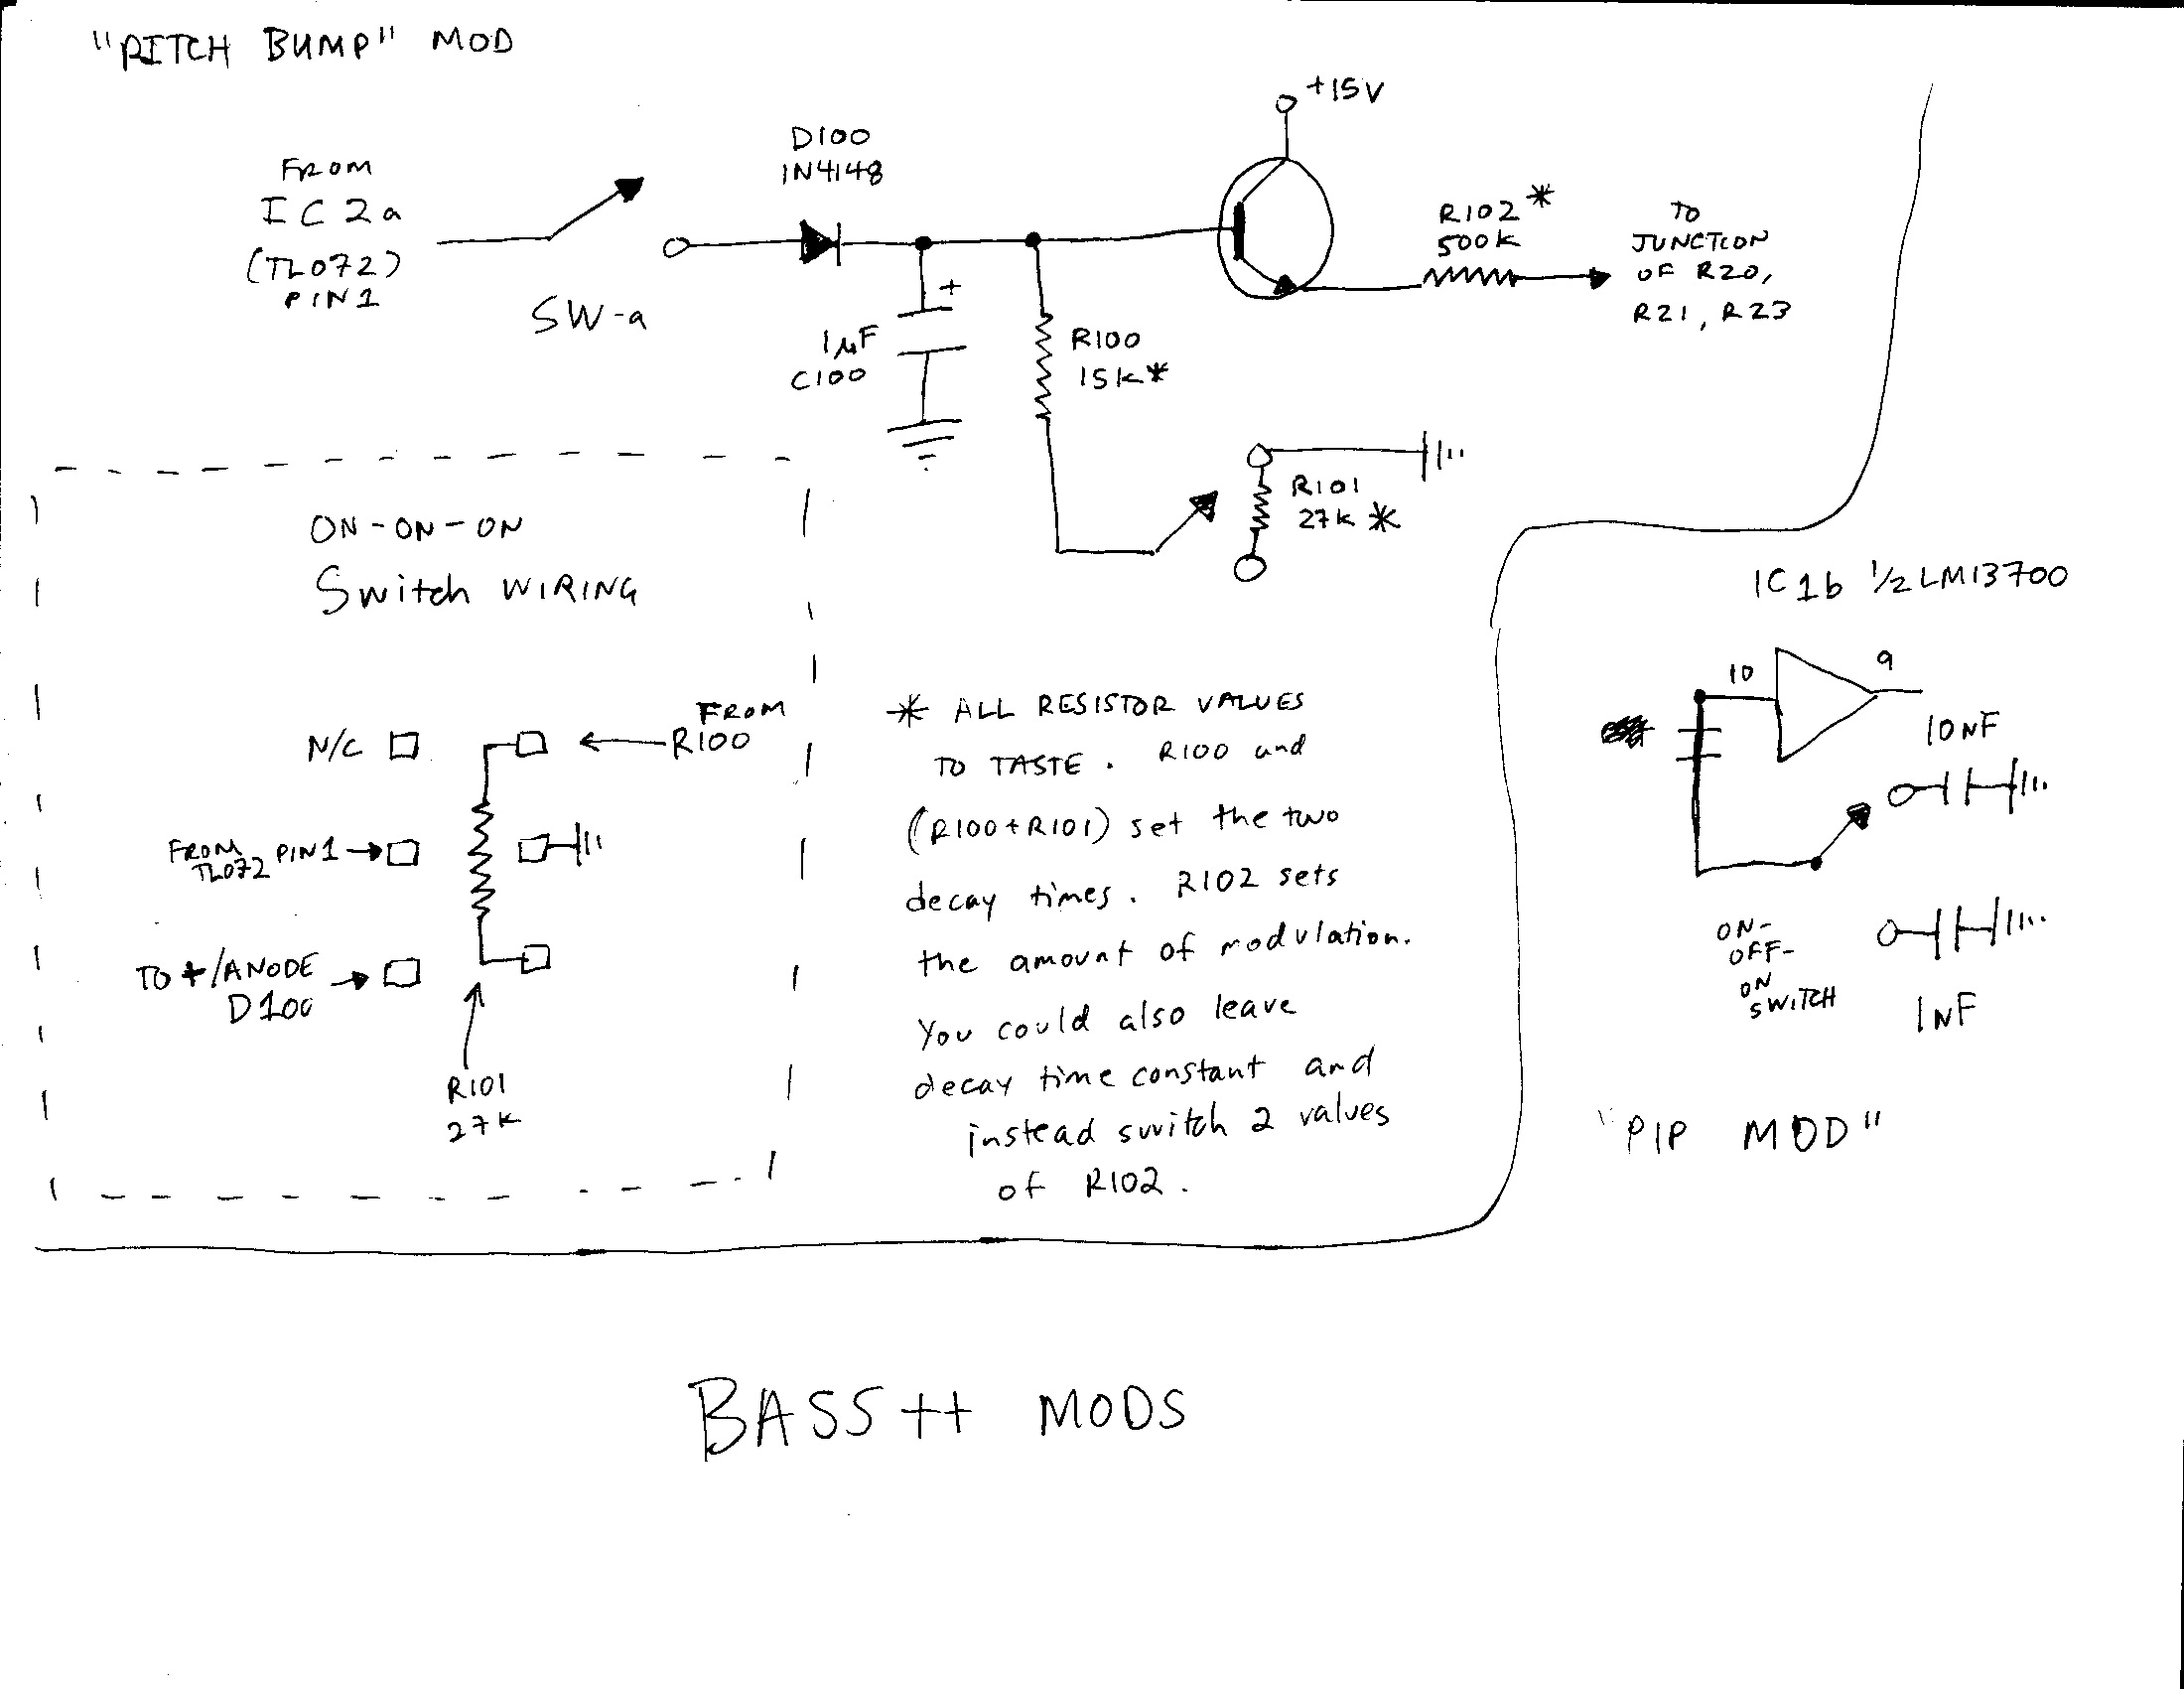 "PITCH BUMP" MOD
FROM
IC2a
(TL072)
PIN1
SW-a
D100
1N4148
+15V
R102*
500K
TO
JUNCTION
OF R20,
R21, R23
+
1µF
C100
R100
15K*
R101
27K*
ON-ON-ON
Switch WIRING
N/C
FROM
R100
FROM
TL072 PIN1
TO +/ANODE
D100
R101
27K
* ALL RESISTOR VALUES
TO TASTE. R100 and
(R100+R101) set the two
decay times. R102 sets
the amount of modulation.
You could also leave
decay time constant and
instead switch 2 values
of R102.
IC1b ½LM13700
10
9
10NF
ON-
OFF-
ON
SWITCH
1NF
"PIP MOD"
BASS++ MODS